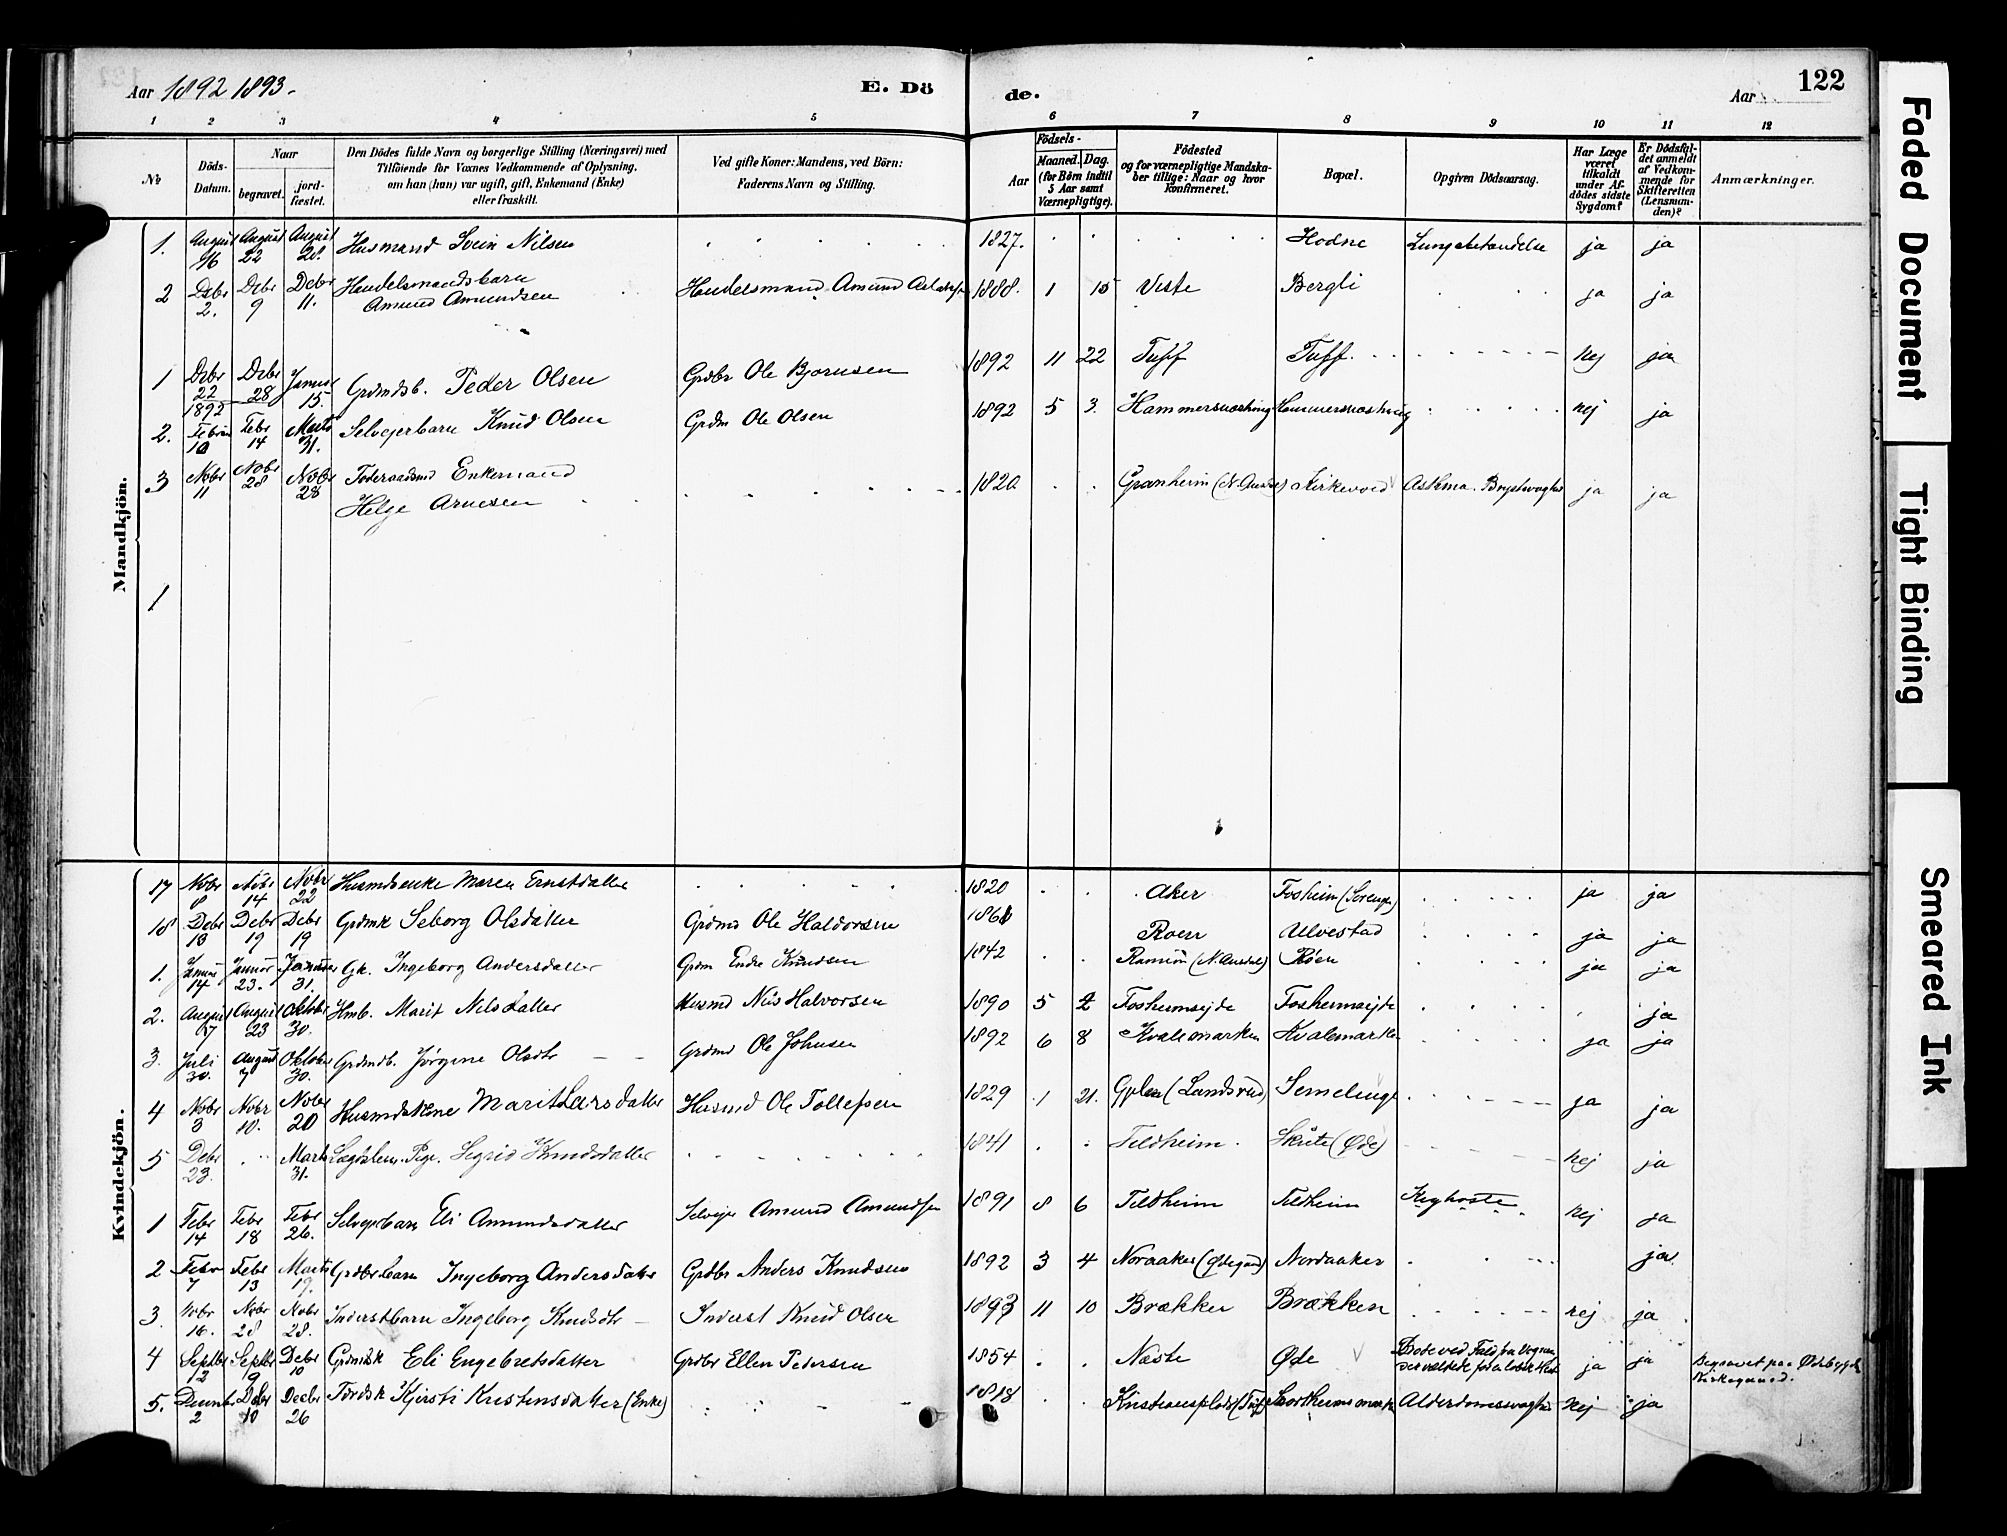 Aar 1892 1893.
E. Dö
de.
Aar
122
1 2 3 4 5 6 7 8 9 10 11 12
№
Döds-
Datum.
Naar
begravet.
jord-
fæstet.
Den Dödes fulde Navn og borgerlige Stilling (Næringsvei) med
Tilföiende for Voxnes Vedkommende af Oplysning,
om han (hun) var ugift, gift, Enkemand (Enke)
eller fraskilt.
Ved gifte Koner: Mandens, ved Börn:
Faderens Navn og Stilling.
Födsels-
Aar
Maaned. Dag.
(for Börn indtil
5 Aar samt
Værnepligtige).
Födested
og for værnepligtige Mandska-
ber tillige: Naar og hvor
konfirmeret.
Bopæl.
Opgiven Dödsaarsag.
Har Læge
været
tilkaldt
under Af-
dödes sidste
Sygdom?
Er Dödsfal-
det anmeldt
af Vedkom-
mende for
Skifteretten
(Lensman-
den)?
Anmærkninger.
Mandkjön.
1. August 16 August 22 August 28. Husmand Svein Nilsen 1827. Hodne Lungebetændelse ja ja
2 Debr 2. Debr 9 Debr 11. Handelsmandsbarn
Amund Amundsen Handelsmand Amund 1888. 1 15 Viste Bergli ja ja
1 Debr 22 1892 Debr 28 Januar 15. Grdmdsb. Peder Olsen Grdbr Ole Bjornsen 1892 11 22 Tuff Tuff nej ja
2. Februar 10 Febr 14 Marts 31. Selvejerbarn Knud Olsen Grdm Ole Olsen 1892 5 3. nej ja
3 Nobr 11 Nobr 28 Nobr 28 Enkemand
Helge Arnesen 1820 Granheim Kirkevold Asthma. ja ja
1
Kvindekjön.
17 Nobr 8 Nobr 14 Nobr 22 Husmdsenke Maren Ernstdatter 1820 Aker Fosheim ja ja
18 Debr 13 Debr 19 Debr 19 Grdmk Seborg Olsdatter Grdmd Ole Haldorsen 1861 Roen Ulvestad ja ja
1. Januar 14 Januar 23. Januar 31. Gk. Ingeborg Andersdatter Grdm Endre Knudsen 1842 Røen ja ja
2. August 17 August 23 Oktober 30. Hmb. Marit Nilsdatter Husmd Nils Halvorsen 1890 5 2 Fosheimsejde Fosheimsejde ja
3. Juli 30. August 7 Oktober 30. Grdmdb. Jørgine Olsdtr Grdmd Ole Johnsen 1892 6 8 Kvalemarken Kvalemarken ja ja
4 Nobr 3 Nobr 10. Nobr 20 Marit Larsdatter Husmd Ole Tollefsen 1829 1 21. ja ja
5 Debr 23. Marts 31. Pige. Sigrid Knudsdatter 1841 Fildheim. Skrite (Øde) nej ja
1 Febr 14 Febr 18 Febr 26. Selvejerbarn Eli Amundsdatter Selvejer Amund Amundsen 1891 8 6 Fildheim Fildheim Kighoste nej ja
2 Febr 7 Febr 13 Marts 19. Grdbrbarn Ingeborg Andersdatter Grdbr Anders Knudsen 1892 3 4 Noraaker Nordaaker ja
3. Nobr 16. Nobr 28 Nobr 28. Inderstbarn Ingeborg Knudsdtr Inderst Knud Olsen 1893 11 10 Brækken Brækken nej ja
4 Septbr 12 Septbr 19 Debr 10 Grdmdsk Eli Engebretsdatter Grdbr Ellen Petersen 1854 Næste Øde Døde ved Fald fra Vognen ja ja Begravet paa Ødebygdens
Kirkegaard.
5. December 2 Debr 10 Decbr 26 Kjersti Kristensdatter (Enke) 1818 Alderdomssvaghed nej ja
Faded Document
Tight Binding
Smeared Ink